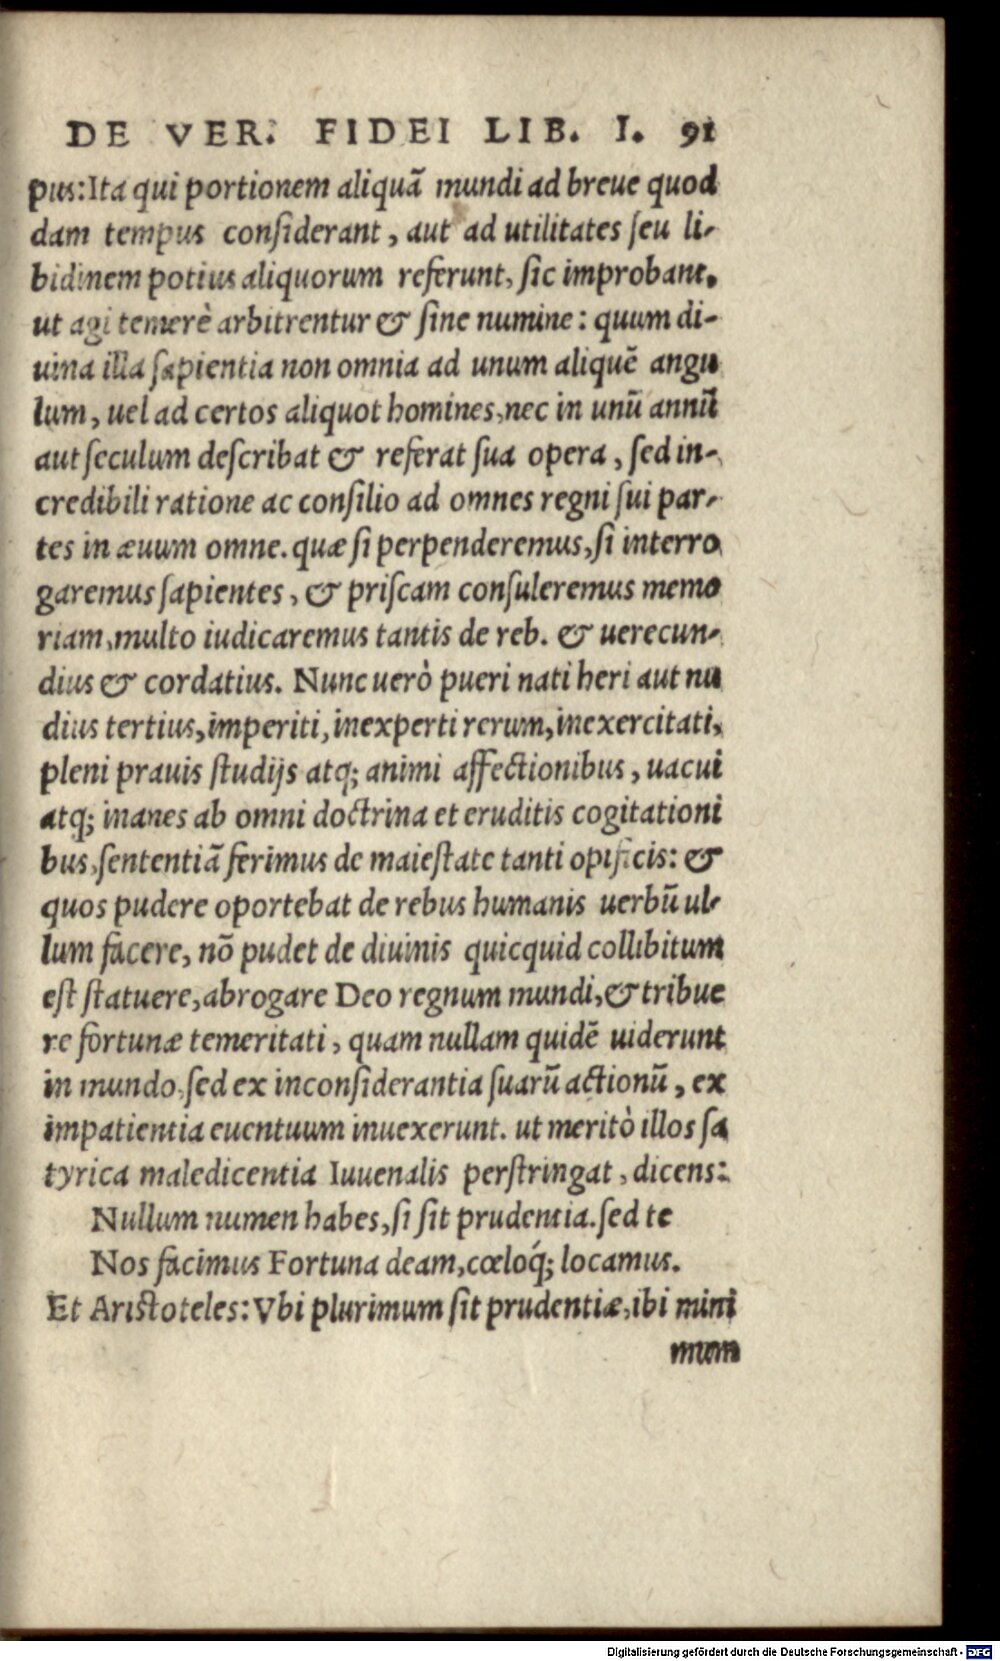 DE VER. FIDEI LIB. I. 91
pus: Ita qui portionem aliquā mundi ad breue quod
dam tempus considerant, aut ad utilitates seu li-
bidinem potius aliquorum referunt, sic improbant,
ut agi temerè arbitrentur & sine numine: quum di-
uina illa sapientia non omnia ad unum aliquē angu
lum, uel ad certos aliquot homines, nec in unū annū
aut seculum describat & referat sua opera, sed in-
credibili ratione ac consilio ad omnes regni sui par-
tes in æuum omne. quæ si perpenderemus, si interro
garemus sapientes, & priscam consuleremus memo
riam, multo iudicaremus tantis de reb. & uerecun-
dius & cordatius. Nunc uerò pueri nati heri aut nu
dius tertius, imperiti, inexperti rerum, inexercitati,
pleni prauis studijs atq; animi affectionibus, uacui
atq; inanes ab omni doctrina et eruditis cogitationi
bus, sententiā ferimus de maiestate tanti opificis: &
quos pudere oportebat de rebus humanis uerbū ul-
lum facere, nō pudet de diuinis quicquid collibitum
est statuere, abrogare Deo regnum mundi, & tribue
re fortunæ temeritati, quam nullam quidē uiderunt
in mundo, sed ex inconsiderantia suarū actionū, ex
impatientia euentuum inuexerunt. ut meritò illos sa
tyrica maledicentia Iuuenalis perstringat, dicens:
Nullum numen habes, si sit prudentia. sed te
Nos facimus Fortuna deam, cœloq́; locamus.
Et Aristoteles: Vbi plurimum sit prudentiæ, ibi mini
mum
Digitalisierung gefördert durch die Deutsche Forschungsgemeinschaft - DFG